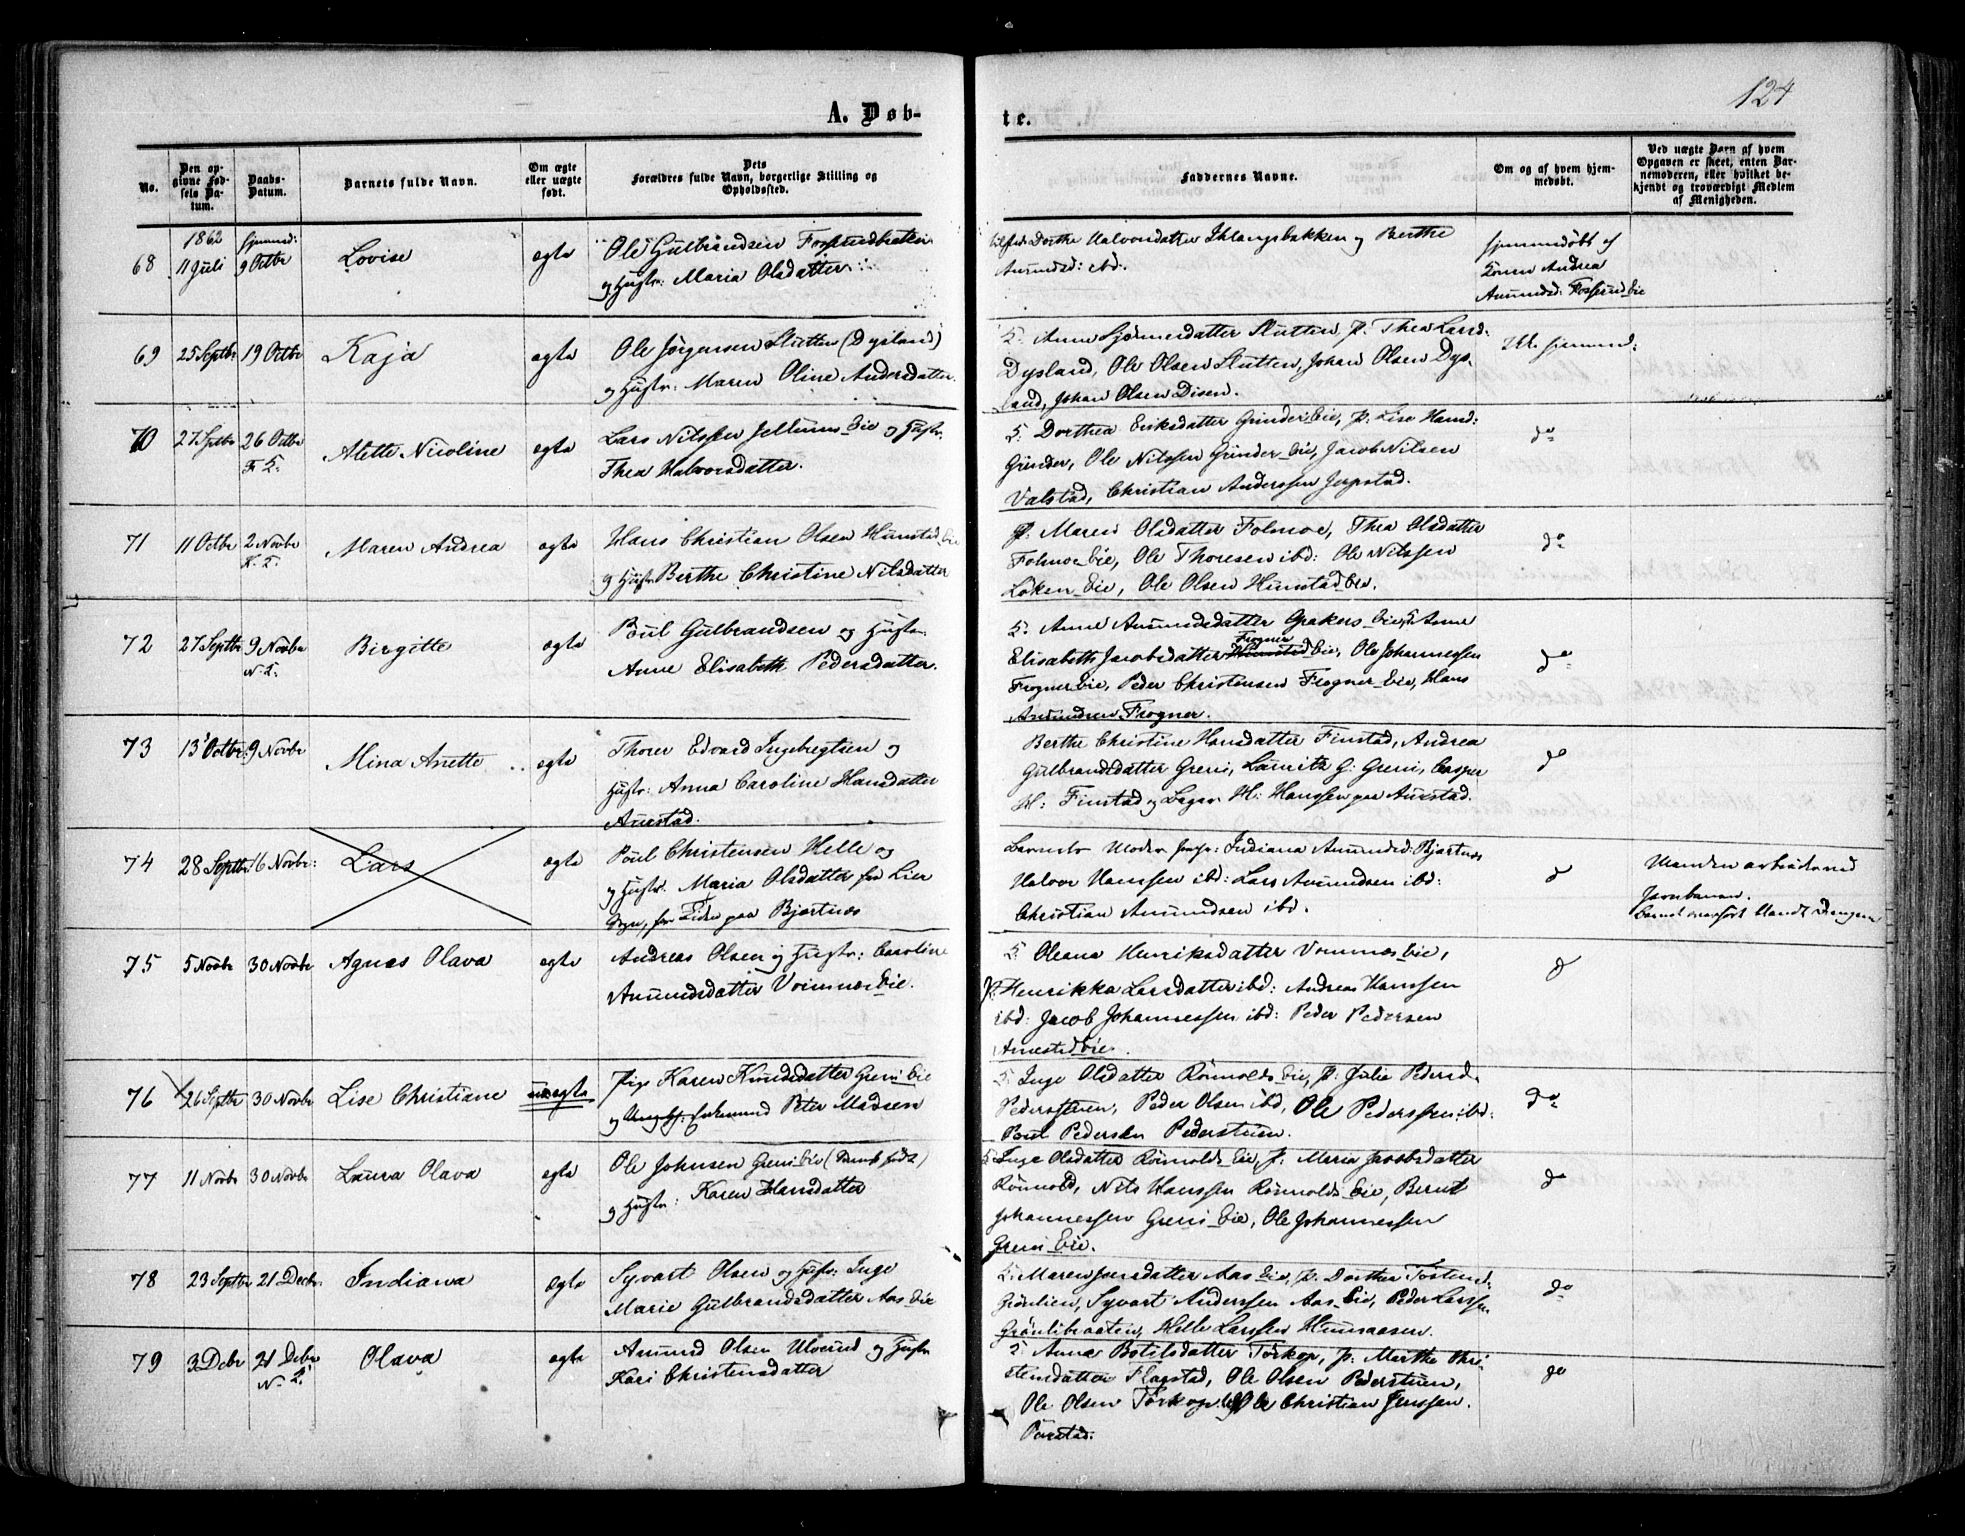 124
A. Døb-
te.
No.
Den op-
givne Fød-
sels Da-
tum.
Daabs-
Datum.
Barnets fulde Navn.
Om ægte
eller uægte
født.
Dets
Forældres fulde Navn, borgerlige Stilling og
Opholdssted.
Faddernes Navne.
Om og af hvem hjem-
medøbt.
Ved uægte Børn af hvem
Opgaven er skeet, enten Bar-
nemoderen, eller hvilket be-
kjendt og troværdigt Medlem
af Menigheden.
1862
68 11 Juli 9 Octbr Lovise ægte Ole Gulbrandsen
og Hustr: Maria Olsdatter
Dorthe Halvorsdatter og Berthe
Amundsd: ibd.
hjemmedøbt af
Andrea
Amundsd: Fosserud Eie
69 25 Septbr 19 Octbr Kaja ægte Ole Jørgensen Slutten (Dysland)
og Hustr: Maren Oline Andersdatter
Anne Slutten, p. Thea Larsd.
Dysland, Ole Olsen Slutten, Johan Olsen Dys-
land, Johan Olsen Disen.
Ikke hjemmed:
70 27 Septbr 26 Octbr Alette Nicoline ægte Lars Nilssen Jellum Eie og Hustr:
Thea Halvorsdatter.
Dorthea Eriksdatter Grinder Eie, p. Lise Hansd:
Grinder, Ole Nilssen Grinder Eie, Jacob Nilsen
Valstad, Christian Anderssen Jerpstad.
do
71 11 Octbr 2 Novbr Maren Andrea ægte Hans Christian Olsen Hunstad Eie
og Hustr Berthe Christine Nilsdatter
p. Maren Olsdatter Folmoe, Thea Olsdatter
Folmoe Eie, Ole Thoresen ibd: Ole Nilssen
Løken Eie, Ole Olsen Hunstad Eie.
do
72 27 Septbr 9 Novbr Birgitte ægte Poul Gulbrandsen og Hustr:
Anne Elisabeth Pedersdatter.
Anne Amundsdatter Eie, Anne
Frogner
Elisabeth Jacobsdatter Hunstad Eie, Ole Johannessen
Frogner Eie, Peder Christensen Frogner Eie, Hans
Amundsen Frogner.
do
73 13 Octbr 9 Novbr Mina Anette ægte Thorer Edvard Ingebregtsen og
Hustr: Anna Caroline Hansdatter
Aurstad.
Berthe Christine Hansdatter Finstad, Andrea
Gulbrandsdatter Greni, Lauritz G: Greni, Casper
H: Finstad og H: Hanssen paa Aurstad.
do
74 28 Septbr 16 Novbr: Lars ægte Poul Christensen Helle og
og Hustr: Maria Olsdatter fra Lier
paa Bjertnæs
Barnets Moder Indiana Amundsd: Bjertnæs
Halvor Hanssen ibd: Lars Amundsen ibd:
Christian Amundsen ibd.
do
Manden arbeider ved
Jernbanen.
75 5 Novbr 30 Novbr Agnes Olava ægte Andreas Olsen og Hustr: Caroline
Amundsdatter Vommes Eie.
Oleana Henriksdatter Vommes Eie,
p. Henrikka Larsdatter ibd: Andreas Hanssen
ibd: Jacob Johannessen ibd: Peder Pedersen
Aurestad Eie.
do
76 26 Septbr 30 Novbr Lise Christiane uægte Pige Karen Knudsdatter Greni Eie
og Peter Madsen
Inge Olsdatter Rønnolds Eie, p: Julie Pedersd.
Pederstuen, Peder Olsen ibd, Ole Pederssen ibd:
Poul Pedersen Pederstuen.
do
77 11 Novbr 30 Novbr Laura Olava ægte Ole Johnsen Greni Eie
og Hustr: Karen Hansdatter
Inge Olsdatter Rønnolds Eie, p: Maria Jacobsdatter
Rønnold, Nils Hanssen Rønnolds Eie, Bernt
Johannessen Greni Eie, Ole Johannessen
Greni Eie.
do
78 23 Septbr 21 Decbr Indiana Ægte Syvart Olsen og Hustr: Inge
Marie Gulbrandsdatter Aas Eie
Maren Aas Eie, p. Dorthea
Syvart Anderssen Aas Eie, Peder Larssen
Grønlibraaten, Helle Larssen
do
79 3 Decbr 21 Decbr Olava ægte Amund Olsen Ulverud og Hustr
Kari Christensdatter
Anna Botilsdatter Torkop, p: Marthe Chri-
stensdatter Flagstad, Ole Olsen Pederstuen,
Ole Olsen Torkop og Ole Christian Jenssen
do